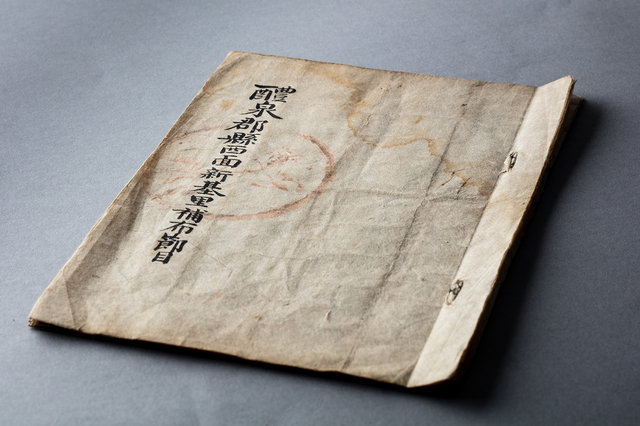 醴泉郡縣西面新基里補布節目